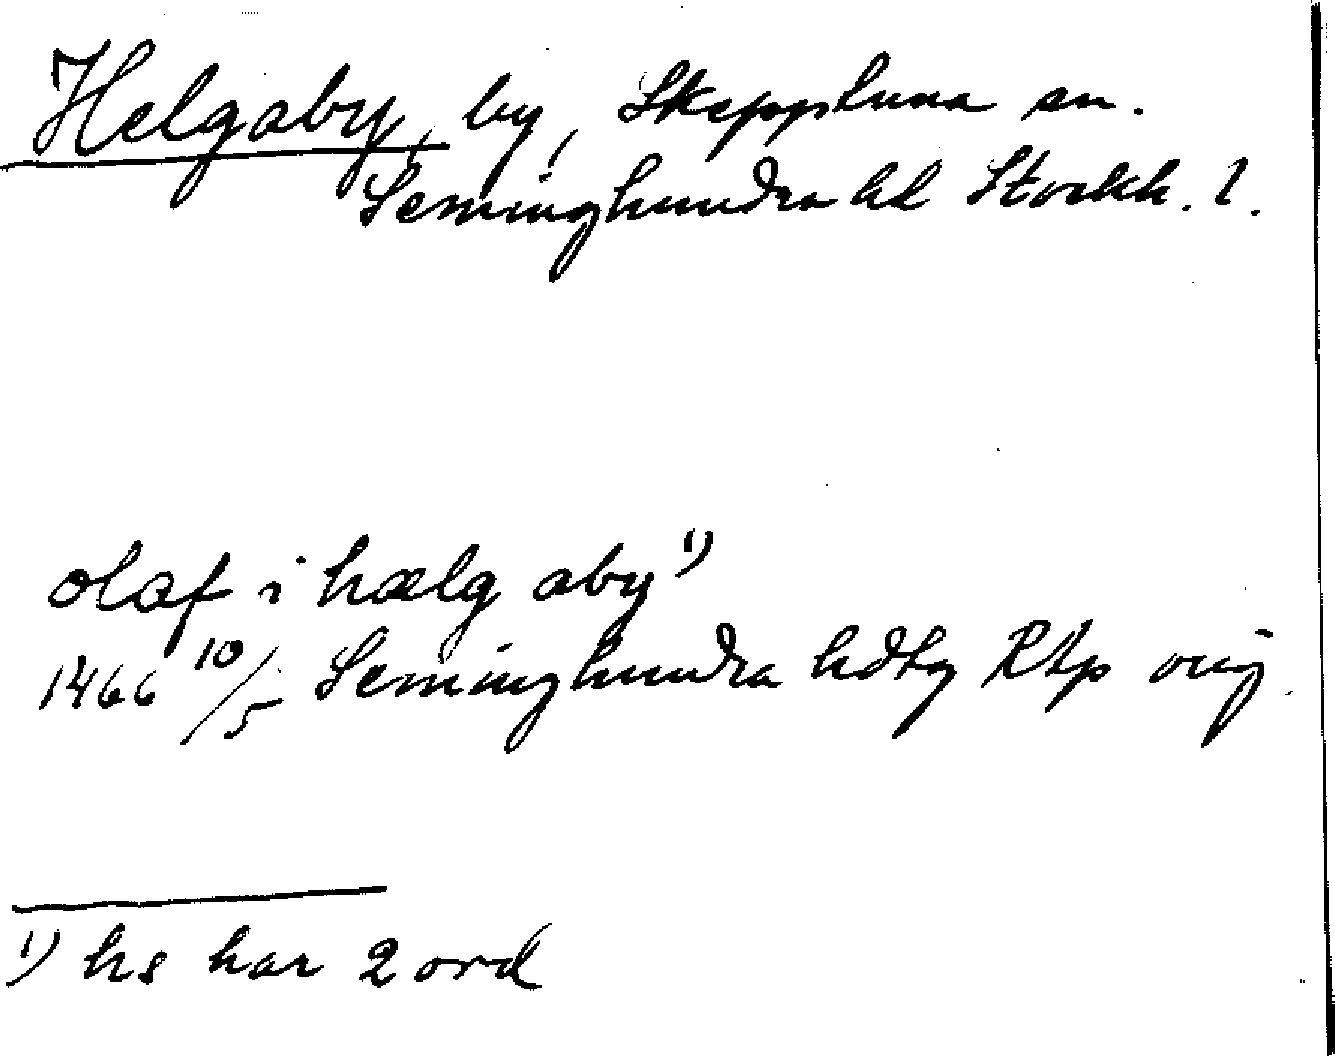 Helgaby, by, Skepptuna sn.
Seminghundra hd Stockh. l.
olaf i hælg aby 1)
1466 10/5 Seminghundra hdtg RAp orig.
1) hs har 2 ord